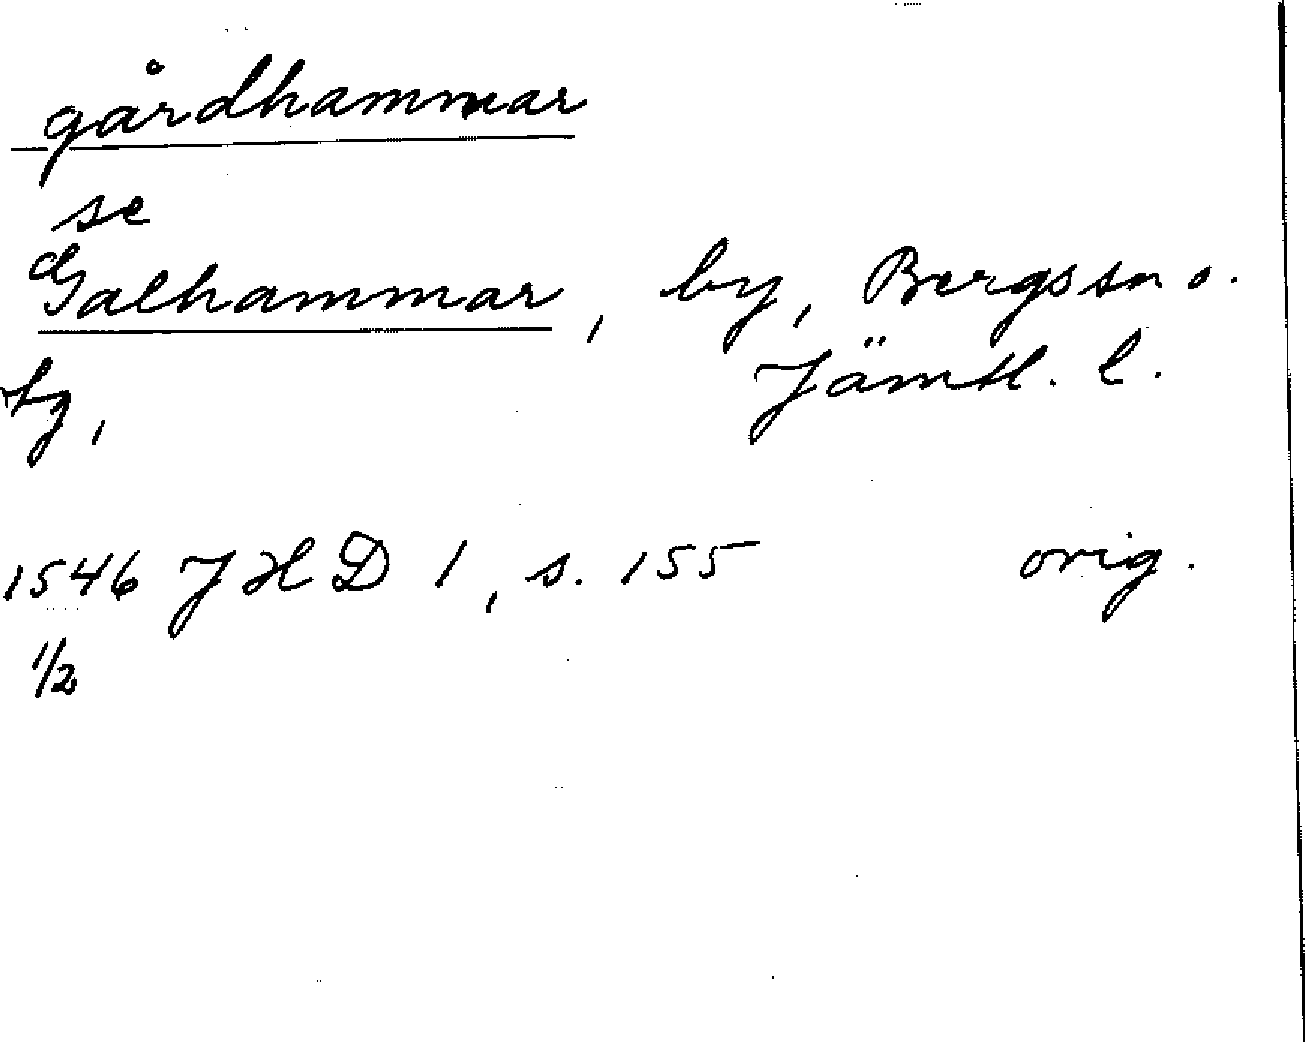 gårdhammar
se
Galhammar, by, Bergs sn o.
tg, Jämtl. l.
1546 JHD 1, s. 155 orig.
1/2